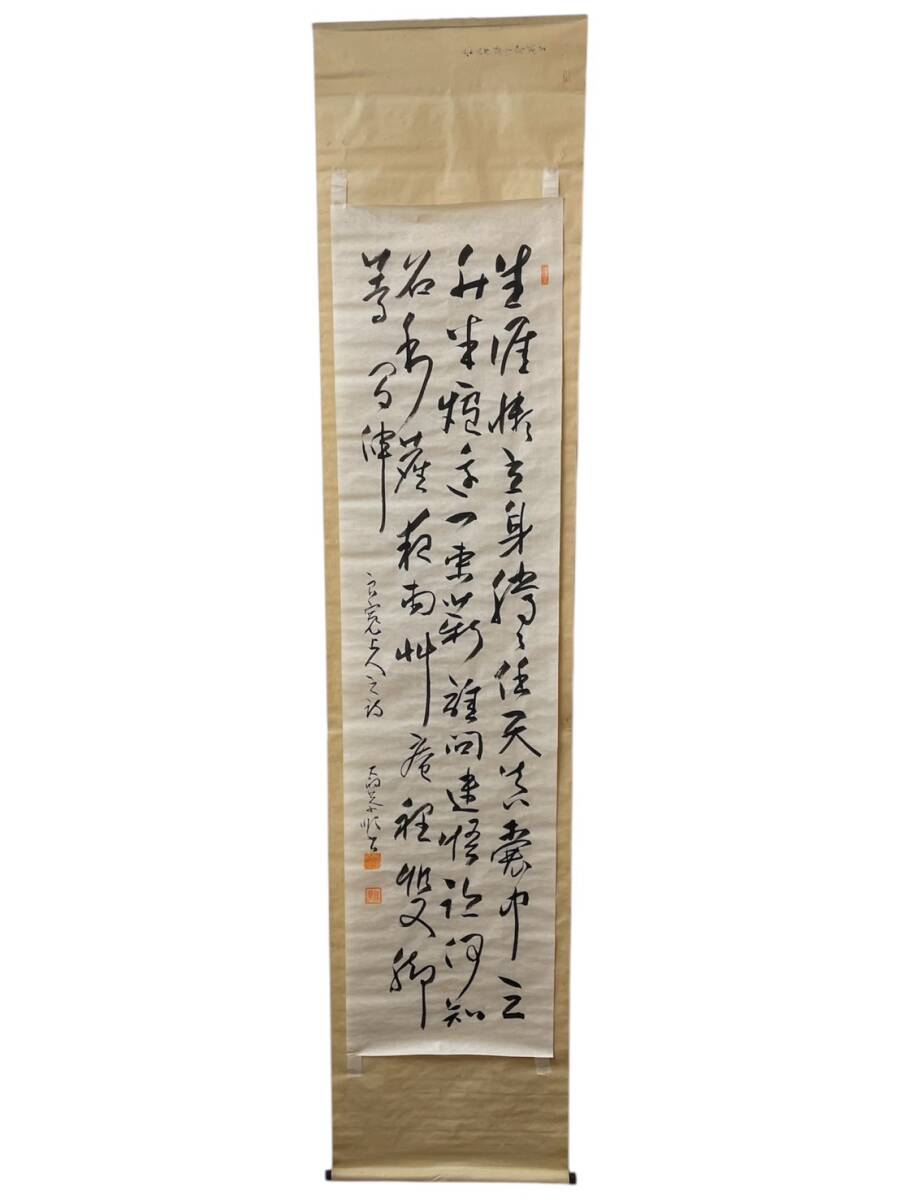 生涯懶立身騰々任天真囊中三
升米爐辺一束薪誰問迷悟跡何知
名利塵夜雨艸庵裡雙脚
等間伸
良寛上人之詩